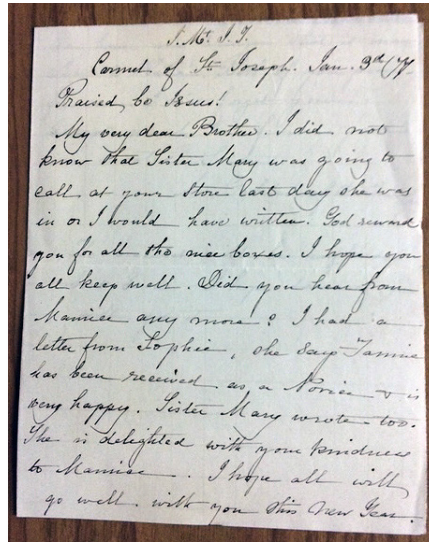 J. M. J. T.
Carmel of St. Joseph. Jan. 3rd
Praised be Jesus!
My very dear Brother. I did not
know that Sister Mary was going to
call at your store last day she was
in or I would have written. God reward
you for all the nice boxes. I hope you
all keep well. Did you hear from
Mamice any more? I had a
letter from Sophie, she says Fannie
has been received as a Novice & is
very happy. Sister Mary wrote too.
She is delighted with your kindness
to Mamice. I hope all will
go well with you this New Year.